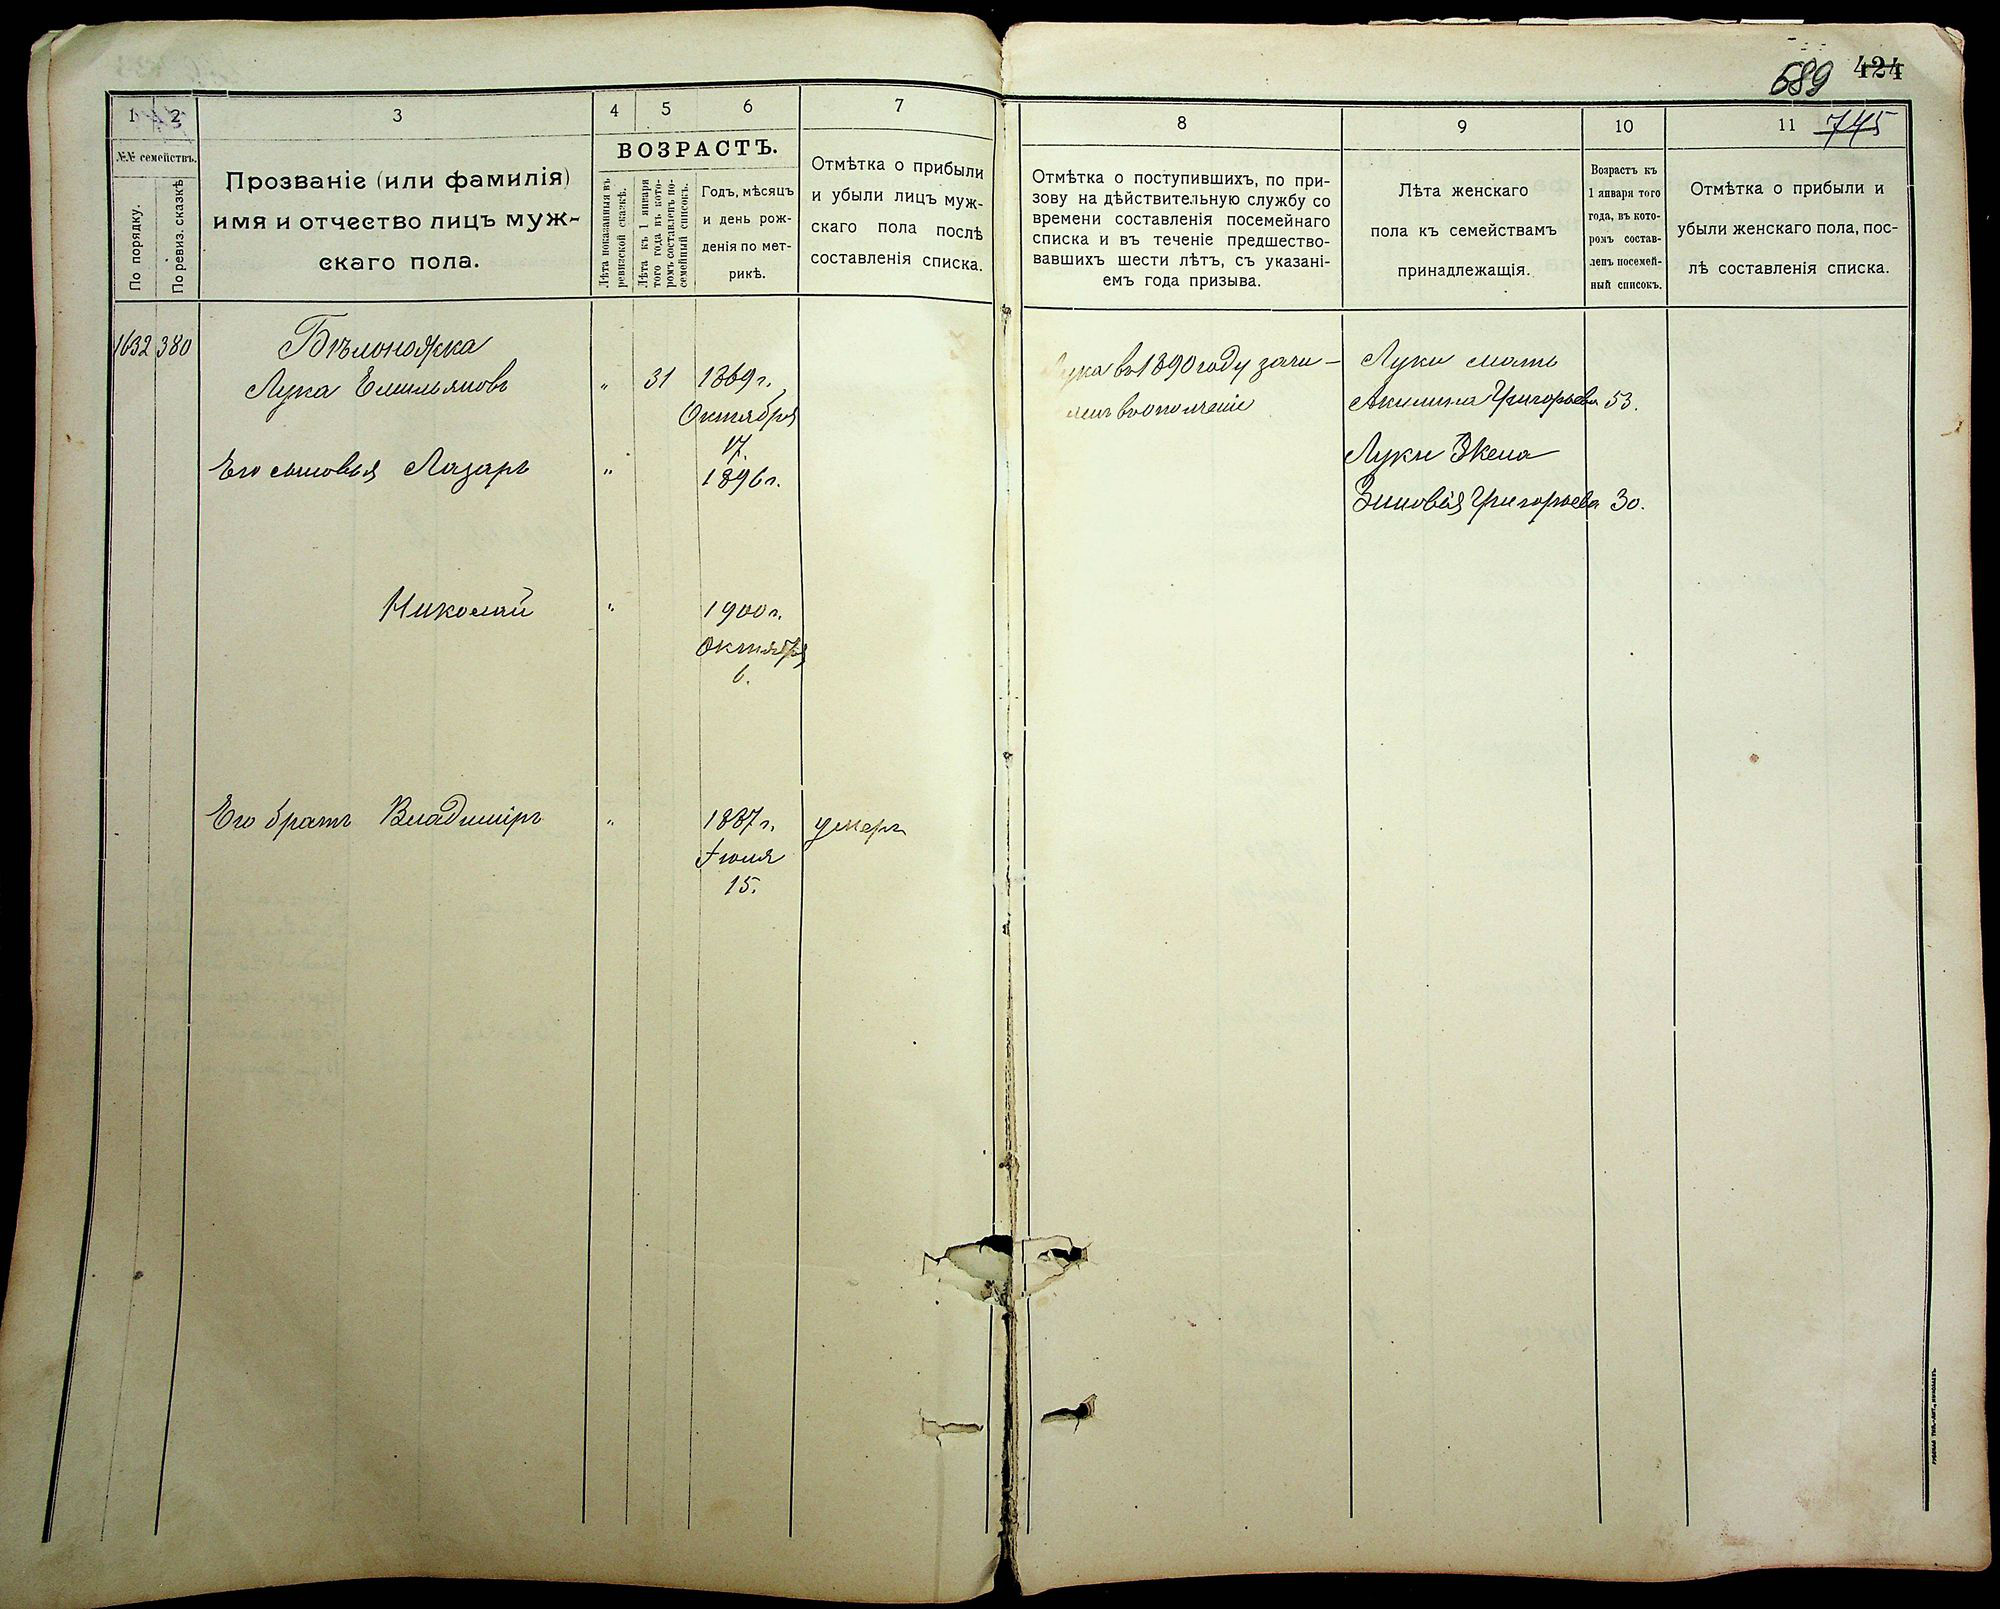 689 424
745
1 2 3 4 5 6 7
№№ семействъ.
По порядку.
По ревиз. сказкѣ
Прозваніе (или фамилія)
имя и отчество лицъ муж-
скаго пола.
ВОЗРАСТЪ.
Лѣта показанныя въ
ревизской сказкѣ.
Лѣта къ 1 января
того года въ кото-
ромъ составленъ по-
семейный списокъ.
Годъ, мѣсяцъ
и день рож-
денія по мет-
рикѣ.
Отмѣтка о прибыли
и убыли лицъ муж-
скаго пола послѣ
составленія списка.
8 9 10 11
Отмѣтка о поступившихъ, по при-
зову на дѣйствительную службу со
времени составленія посемейнаго
списка и въ теченіе предшество-
вавшихъ шести лѣтъ, съ указані-
емъ года призыва.
Лѣта женскаго
пола къ семействамъ
принадлежащія.
Возрастъ къ
1 января того
года, въ кото-
ромъ состав-
ленъ посемей-
ный списокъ.
Отмѣтка о прибыли и
убыли женскаго пола, пос-
лѣ составленія списка.
1632 380 Бѣлоножка
Лука Емельяновъ " 31 1869 г.
Октября
17.
Его сыновья Лазарь " 1896 г.
Николай " 1900 г.
Октября
6.
Его братъ Владиміръ " 1887 г. умеръ
Іюля
15.
Лука въ 1890 году зачи-
сленъ въ ополченіе
Луки мать
Акилина Григорьева 53.
Луки Жена
Зиновія Григорьева 30.